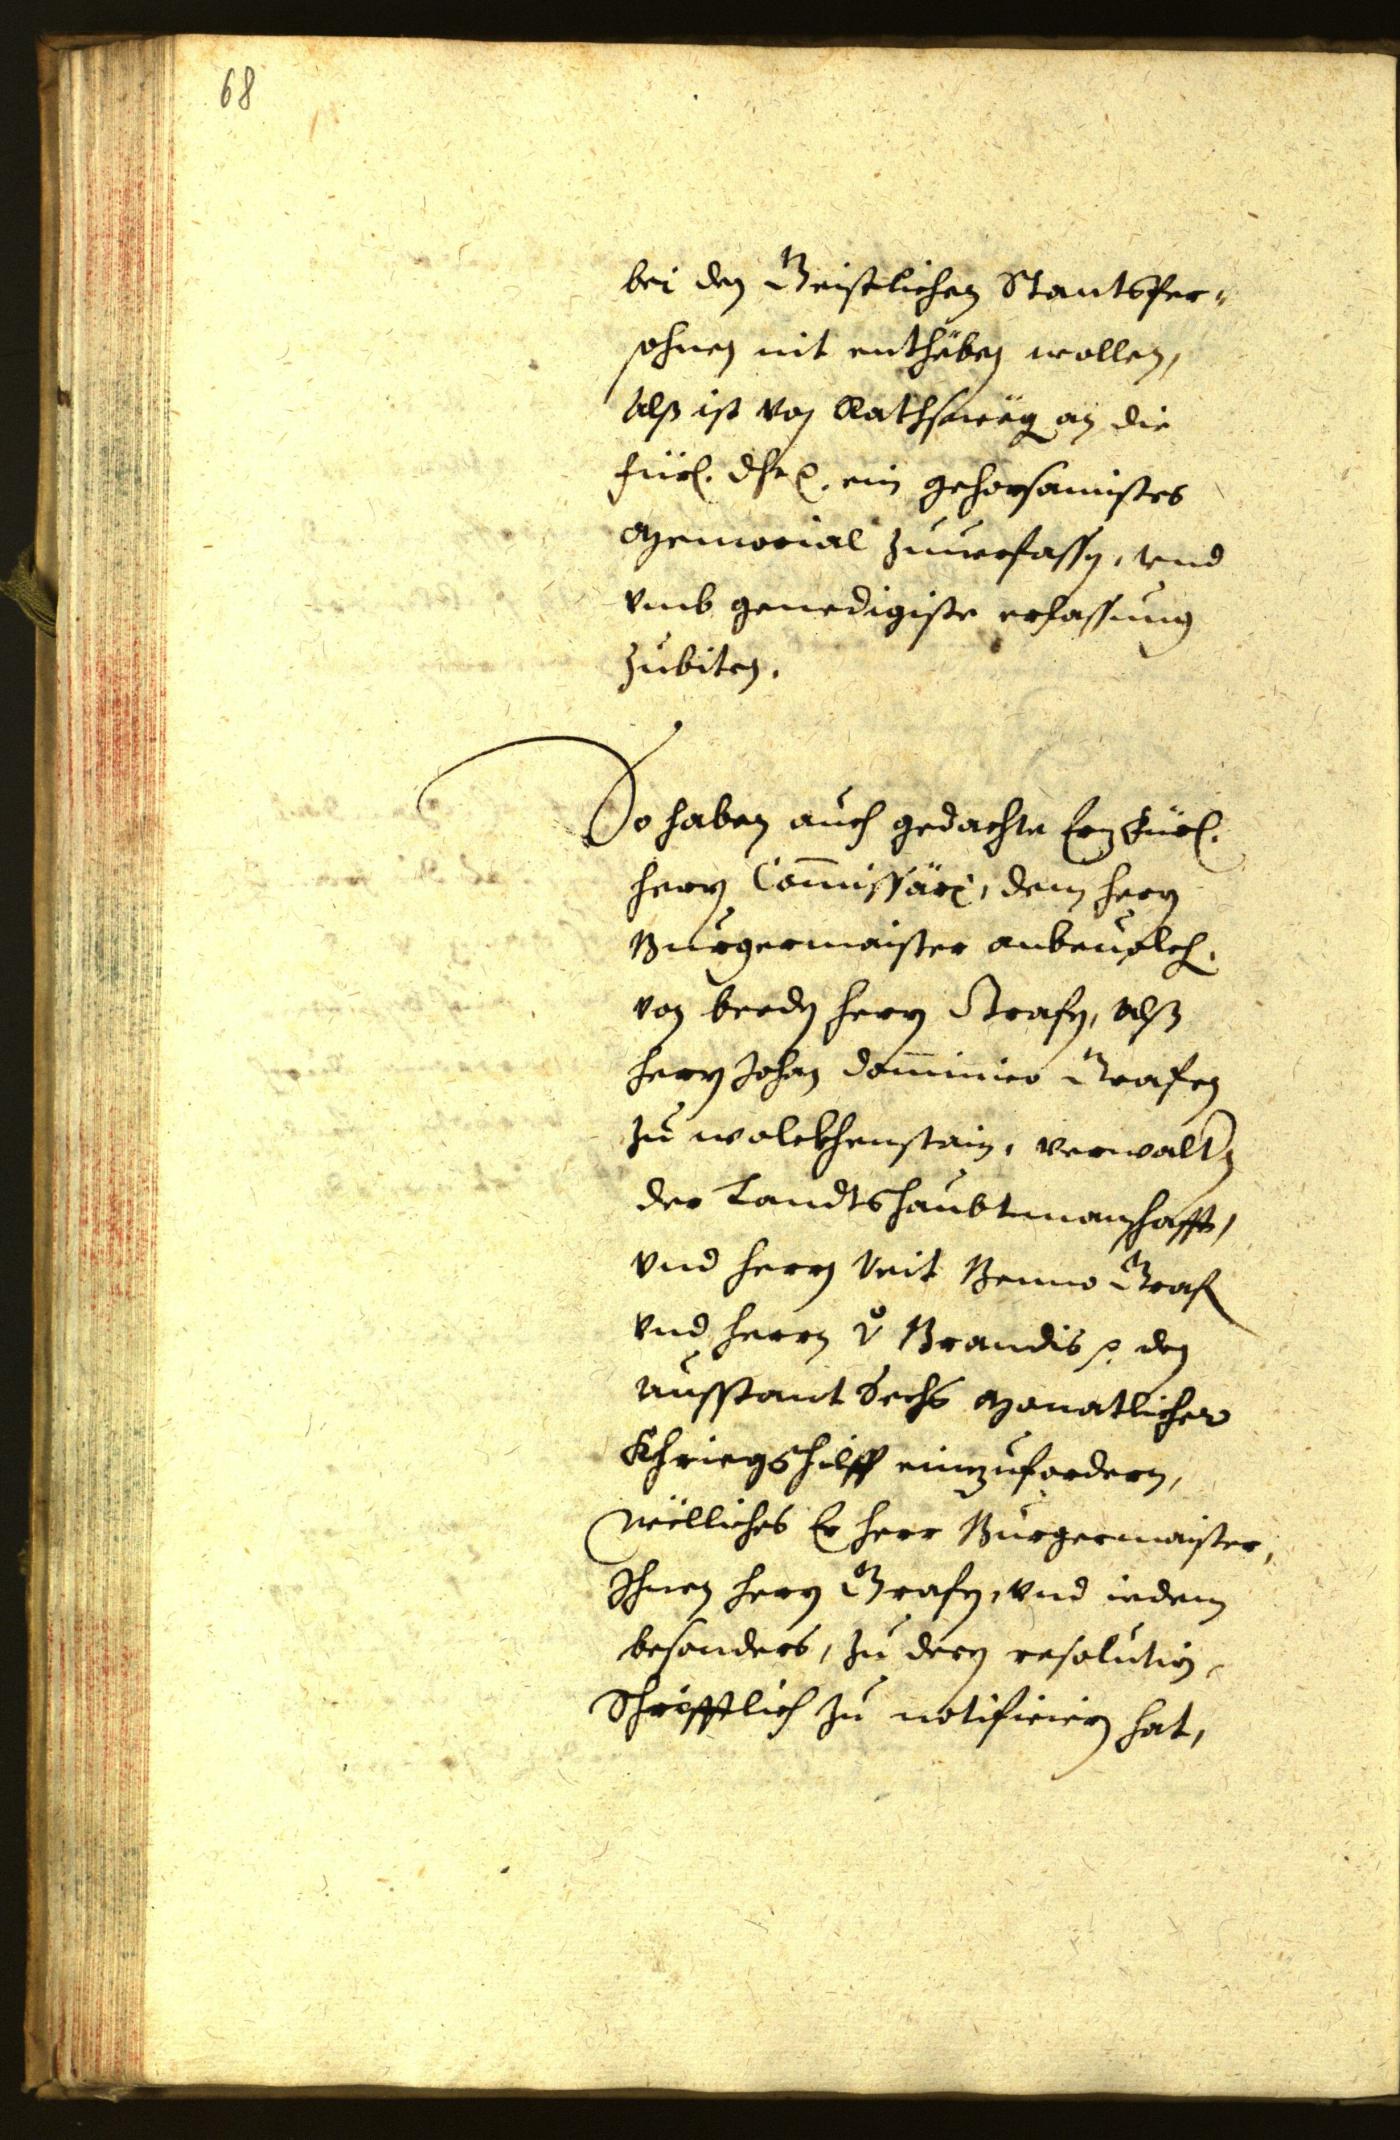 68
bei den Geistlichen Standtsper-
sohnen nit entheben wollen,
Alß ist von Rathsweg an die
Fürl. Dhrl. ein gehorsamistes
Memorial zuuerfassen, vnd
vmb genedigiste erlassung
zubiten.
So haben auch gedachte Erzfürl.
Herrn Commissäri, dem Herrn
Burgermaister anbeuolchen,
von beeden Herrn Grafen, Alß
Herrn Johan Dominico Grafen
zu Wolckhenstain, Verwaltern
der Landtshaubtmanschafft,
vnd Herrn Veit Benno Graf
vnd Herrn v Brandis den
ausstant Sechs Monatlicher
Khriegshilff einzufordern,
wölliches Er Herr Burgermaister,
Ihnen Herrn Grafen, vnd iedem
besonders, zu dern resolution,
Schrifftlich zu notificiern hat,